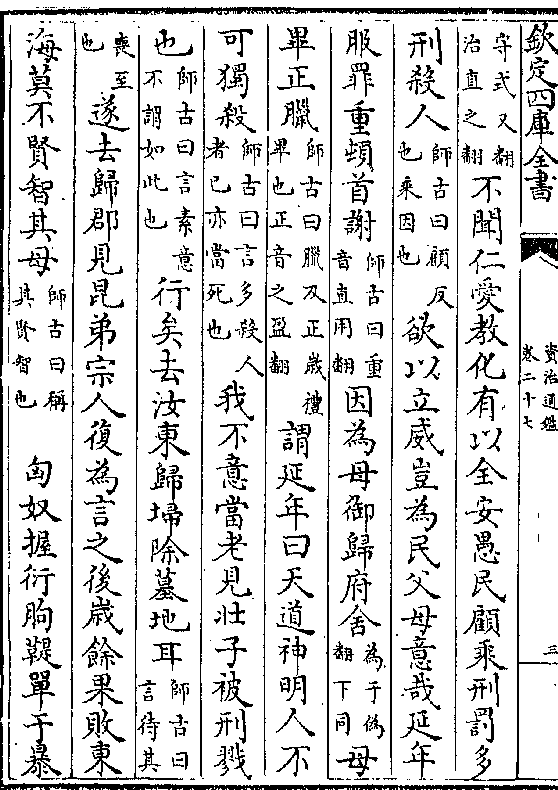 欽定四庫全書
資治通鑑
卷二十七
三
守式又翻治直之翻不聞仁愛教化有以全安愚民顧乗刑罰多
刑殺人師古曰顧反也乗因也欲以立威豈為民父母意哉延年
服罪重頓首謝師古曰重音直用翻因為母御歸府舍為于偽翻下同母
畢正臘師古曰臘及正歲禮畢也正音之盈翻謂延年曰天道神明人不
可獨殺師古曰言多殺人者已亦當死也我不意當老見壯子被刑戮
也師古曰言素意不謂如此也行矣去汝東歸埽除墓地耳師古曰言待其
喪至也遂去歸郡見昆弟宗人復為言之後歲餘果敗東
海莫不賢智其母師古曰稱其賢智也匈奴握衍朐鞮單于暴